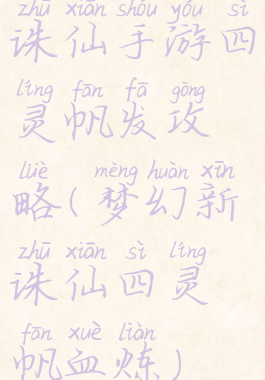 zhū xiān shǒu yóu sì
诛仙手游四
líng fān fā gōng
灵帆发攻
lüè mèng huàn xīn
略(梦幻新
zhū xiān sì líng
诛仙四灵
fān xuè liàn
帆血炼)